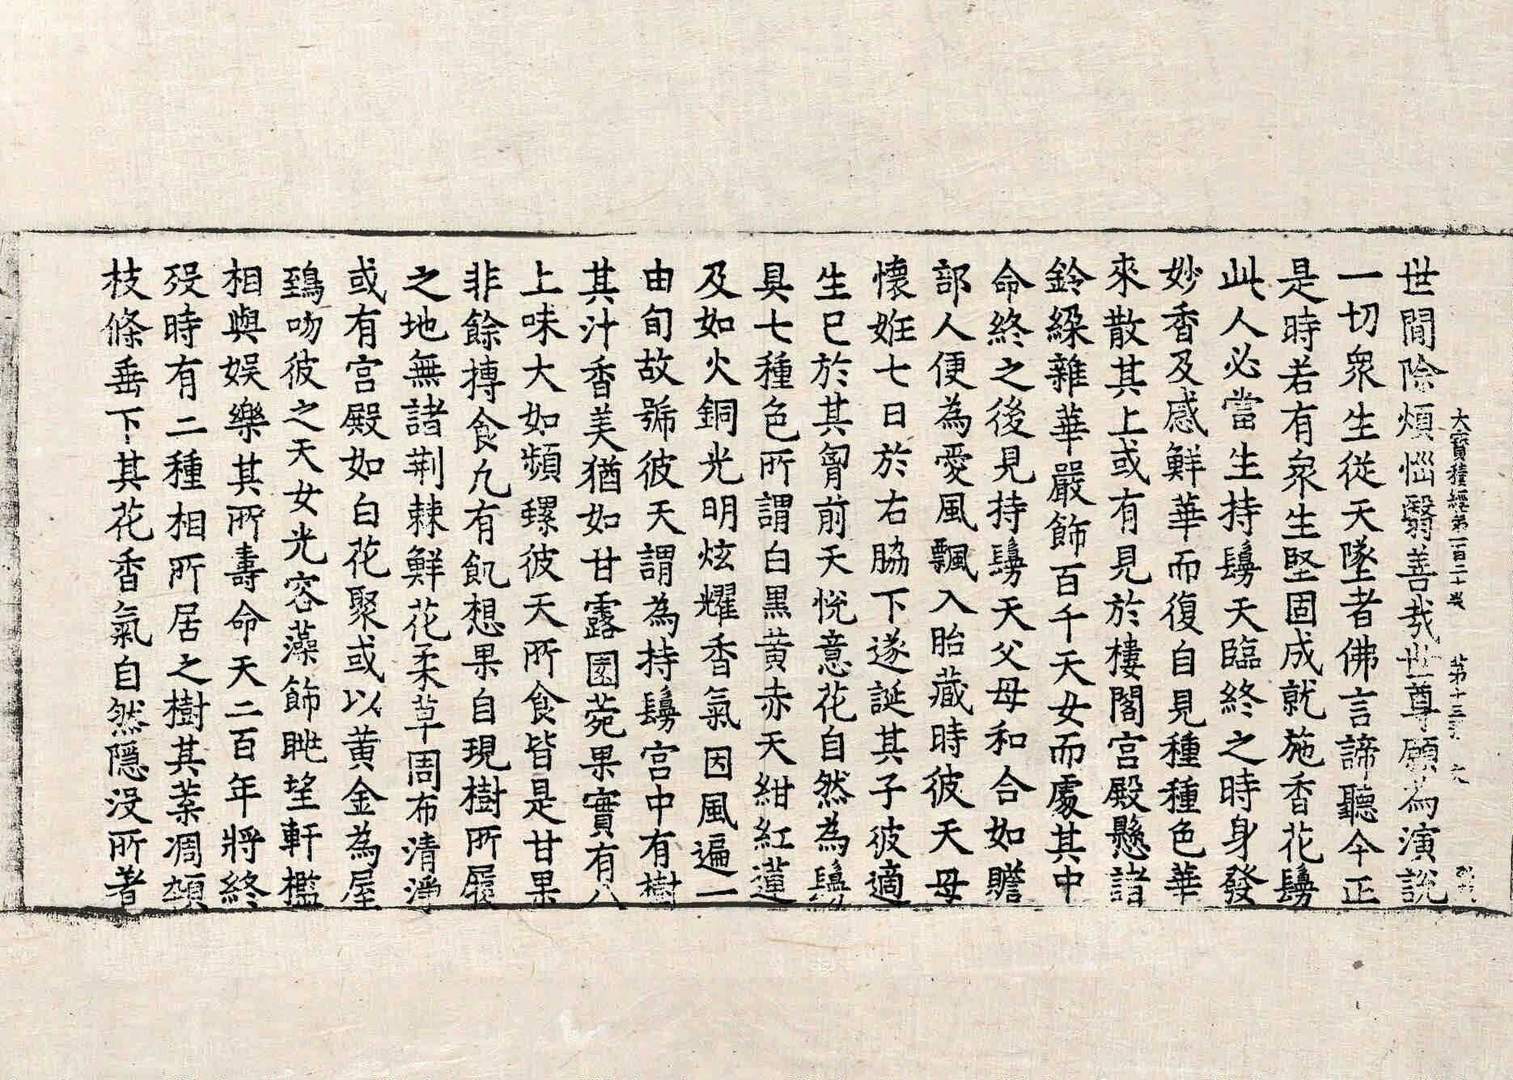 大寳積經第一百二十卷 第十三張
世閒除煩惱翳善哉世尊願為演說
一切衆生從天墜者佛言諦聽今正
是時若有衆生堅固成就施香花鬘
此人必當生持鬘天臨終之時身發
妙香及感鮮華而復自見種種色華
來散其上或有見於樓閣宮殿懸諸
鈴繰雜華嚴飾百千天女而處其中
命終之後見持鬘天父母和合如瞻
部人便為愛風飄入胎藏時彼天母
懷姙七日於右脇下遂誕其子彼適
生已於其胷前天悅意花自然為鬘
具七種色所謂白黑黄赤天紺紅蓮
及如火銅光明炫耀香氣因風遍一
由旬故號彼天謂為持鬘宮中有樹
其汁香美猶如甘露園苑果實有八
上味大如頻螺彼天所食皆是甘果
非餘摶食凢有飢想果自現樹所履
之地無諸荆棘鮮花柔草周布清淨
或有宮殿如白花聚或以黄金為屋
鵄吻彼之天女光容藻飾眺望軒檻
相與娯樂其所壽命天二百年將終
歿時有二種相所居之樹其葉凋顇
枝條垂下其花香氣自然隱没所著